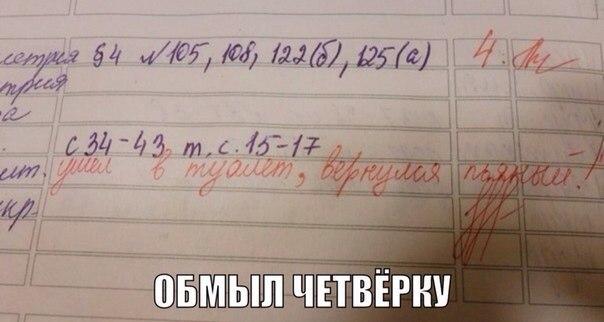 метрия §4 №105, 108, 122(б), 125(а) 4.
с 34-43 т. с. 15-17
ушёл в туалет, вернулся пьяный!
ОБМЫЛ ЧЕТВЁРКУ